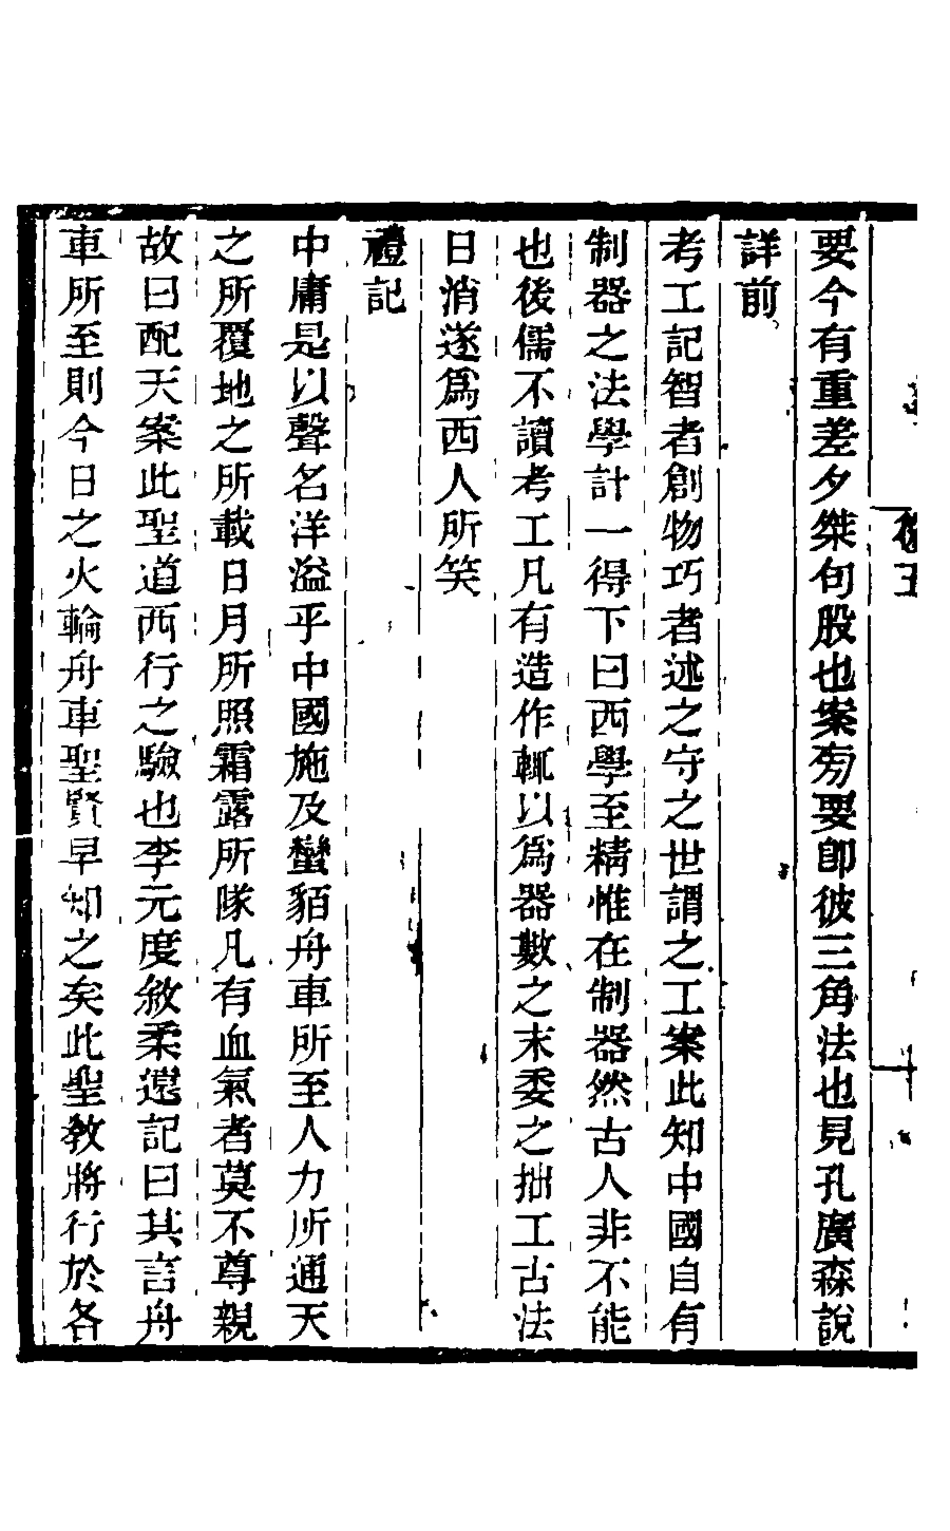 要今有重差夕桀句股也案旁要卽彼三角法也見孔廣森說
詳前
考工記智者創物巧者述之守之世謂之工案此知中國自有
制器之法學計一得下曰西學至精惟在制器然古人非不能
也後儒不讀考工凡有造作輒以爲器數之末委之拙工古法
日消遂爲西人所笑
禮記
中庸是以聲名洋溢乎中國施及蠻貊舟車所至人力所通天
之所覆地之所載日月所照霜露所隊凡有血氣者莫不尊親
故曰配天案此聖道西行之驗也李元度敘柔遠記曰其言舟
車所至則今日之火輪舟車聖賢早知之矣此聖敎將行於各